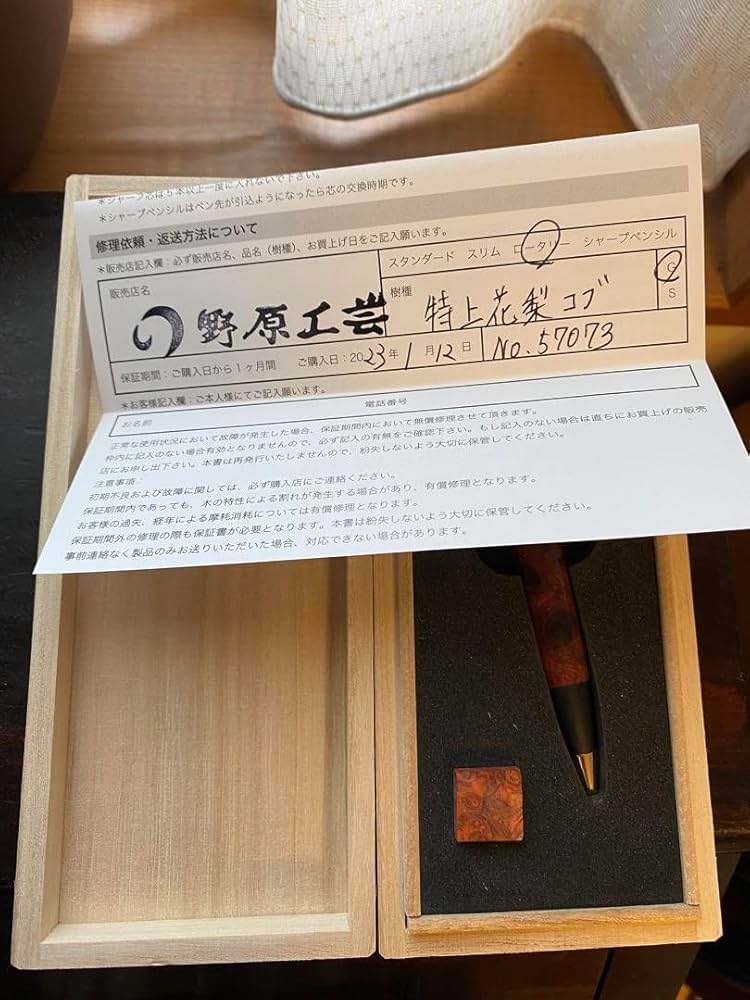 *シャープ芯は5本以上一度に入れないで下さい。
*シャープペンシルはペン先が引込ようになったら芯の交換時期です。
修理依頼・返送方法について
*販売店記入欄：必ず販売店名、品名（樹種）、お買上げ日をご記入願います。
販売店名
野原工芸
スタンダード スリム ロータリー シャープペンシル
樹種
特上花梨コブ
G
S
保証期間：ご購入日から1ヶ月間 ご購入日：2023年1月12日 No.57073
*お客様記入欄：ご本人様にてご記入願います。
お名前 電話番号
正常な使用状況において故障が発生した場合、保証期間内において無償修理させて頂きます。
枠内に記入のない場合有効となりませんので、必ず記入の有無をご確認下さい。もし記入のない場合は直ちにお買上げの販売
店にお申し出下さい。本書は再発行いたしませんので、紛失しないよう大切に保管してください。
注意事項：
初期不良および故障に関しては、必ず購入店にご連絡ください。
保証期間内であっても、木の特性による割れが発生する場合があり、有償修理となります。
お客様の過失、経年による摩耗消耗については有償修理となります。
保証期間外の修理の際も保証書が必要となります。本書は紛失しないよう大切に保管してください。
事前連絡なく製品のみお送りいただいた場合、対応できない場合があります。